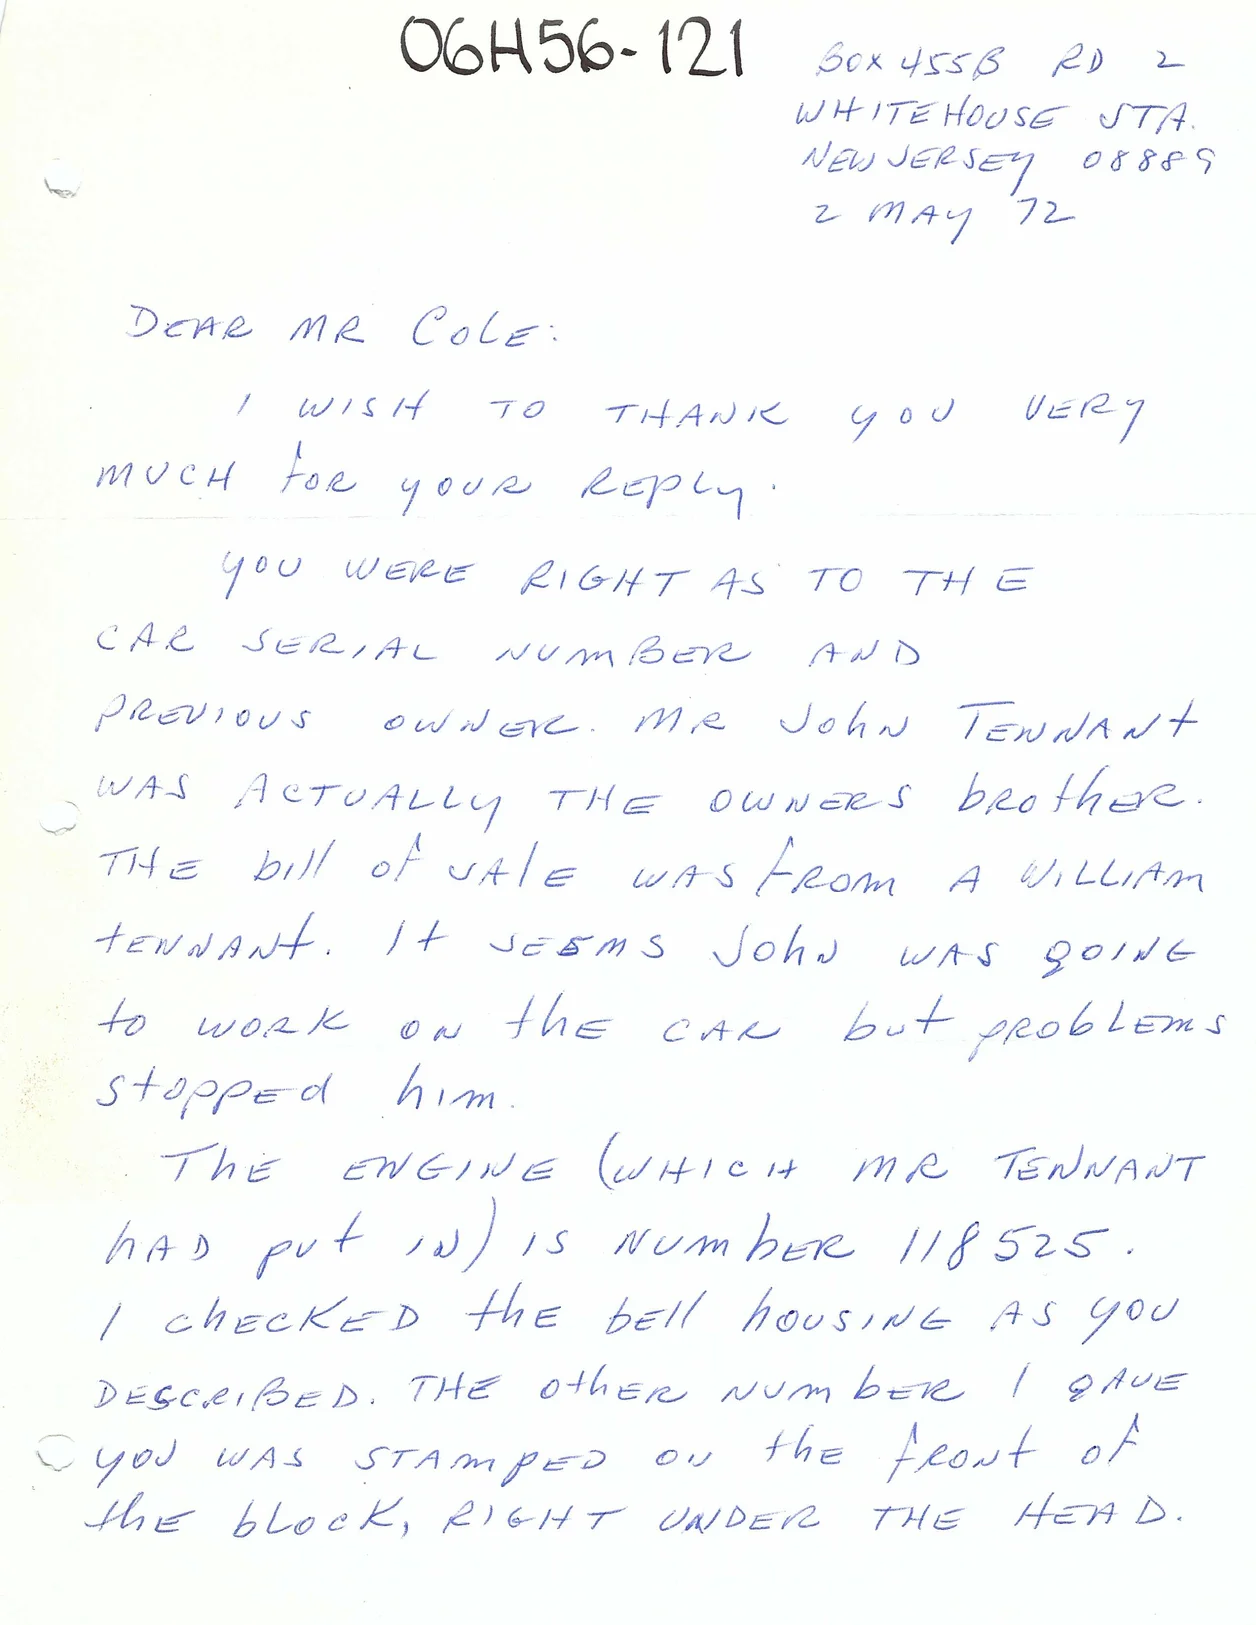 06H56-121
BOX 455B RD 2
WHITEHOUSE STA.
NEW JERSEY 08889
2 MAY 72
DEAR MR COLE:
I WISH TO THANK YOU VERY
MUCH for YOUR REPLY.
YOU WERE RIGHT AS TO THE
CAR SERIAL NUMBER AND
PREVIOUS OWNER. MR JOHN TENNANT
WAS ACTUALLY THE OWNERS brother.
THE bill of SALE WAS FROM A WILLIAM
TENNANT. It SEEMS JOHN WAS GOING
to WORK ON the CAR but problems
stopped him.
The ENGINE (WHICH MR TENNANT
HAD put IN) IS NUMBER 118525.
I CHECKED the bell housing AS YOU
DESCRIBED. THE other NUMBER I GAVE
YOU WAS STAMPED ON the front of
the block, RIGHT UNDER THE HEAD.